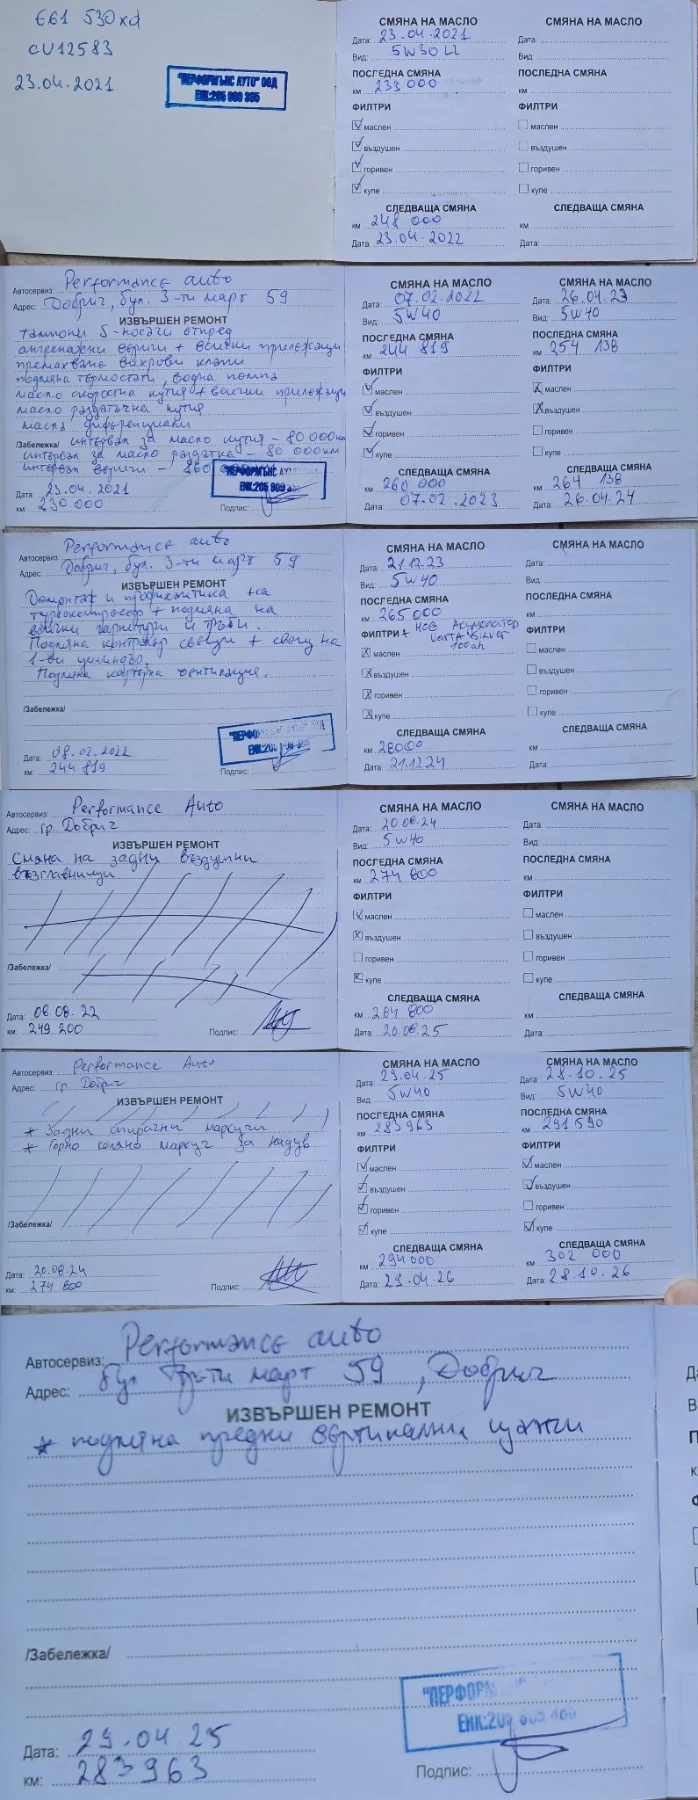 E61 530xd
CU12583
23.04.2021
"ПЕРФОРМЪНС АУТО" ООД
ЕИК:205 909 395
СМЯНА НА МАСЛО
Дата: 23.04.2021
Вид: 5W30 LL
ПОСЛЕДНА СМЯНА
км 233 000
ФИЛТРИ
маслен
въздушен
горивен
купе
СЛЕДВАЩА СМЯНА
км 248 000
Дата: 23.04.2022
СМЯНА НА МАСЛО
Дата:
Вид:
ПОСЛЕДНА СМЯНА
км
ФИЛТРИ
маслен
въздушен
горивен
купе
СЛЕДВАЩА СМЯНА
км
Дата:
Автосервиз: Performance auto
Адрес: Добрич, бул. 3-ти март 59
ИЗВЪРШЕН РЕМОНТ
тампони 5-носачи отпред
ангренажни вериги + всички прилежащи
премахване вихрови клапи
подмяна термостати, водна помпа
масло скоростна кутия + всички прилежащи
масло раздатъчна кутия
масла диференциали
/Забележка/ интервал за масло кутия - 80 000км
интервал за масло раздатка - 80 000км
интервал вериги -
"ПЕРФОРМЪНС
ЕИК:205 909
Дата: 23.04.2021
км: 230 000
Подпис:
СМЯНА НА МАСЛО
Дата: 07.02.2022
Вид: 5W40
ПОСЛЕДНА СМЯНА
км 244 819
ФИЛТРИ
маслен
въздушен
горивен
купе
СЛЕДВАЩА СМЯНА
км 260 000
Дата: 07.02.2023
СМЯНА НА МАСЛО
Дата: 26.04.23
Вид: 5W40
ПОСЛЕДНА СМЯНА
км 254 138
ФИЛТРИ
маслен
въздушен
горивен
купе
СЛЕДВАЩА СМЯНА
км 264 138
Дата: 26.04.24
Автосервиз: Performance auto
Адрес: Добрич, бул. 3-ти март 59
ИЗВЪРШЕН РЕМОНТ
Демонтаж и профилактика на
турбокомпресор + подмяна на
всички гарнитури и тръби.
Подмяна контролер свещи + свещ на
1-ви цилиндър.
Подмяна картерна вентилация.
/Забележка/
Дата: 08.02.2022
км: 244 819
Подпис:
СМЯНА НА МАСЛО
Дата: 21.12.23
Вид: 5W40
ПОСЛЕДНА СМЯНА
км 265 000
ФИЛТРИ + Нов Акумулатор
Varta Silver
100ah
маслен
въздушен
горивен
купе
СЛЕДВАЩА СМЯНА
км 28000
Дата: 21.12.24
СМЯНА НА МАСЛО
Дата:
Вид:
ПОСЛЕДНА СМЯНА
км
ФИЛТРИ
маслен
въздушен
горивен
купе
СЛЕДВАЩА СМЯНА
км
Дата:
Автосервиз: Performance Auto
Адрес: гр. Добрич
ИЗВЪРШЕН РЕМОНТ
Смяна на задни въздушни
възглавници
/Забележка/
Дата: 06.08.22
км: 249 200
Подпис:
СМЯНА НА МАСЛО
Дата: 20.08.24
Вид: 5W40
ПОСЛЕДНА СМЯНА
км 274 800
ФИЛТРИ
маслен
въздушен
горивен
купе
СЛЕДВАЩА СМЯНА
км 284 800
Дата: 20.08.25
СМЯНА НА МАСЛО
Дата:
Вид:
ПОСЛЕДНА СМЯНА
км
ФИЛТРИ
маслен
въздушен
горивен
купе
СЛЕДВАЩА СМЯНА
км
Дата:
Автосервиз: Performance Auto
Адрес: гр. Добрич
ИЗВЪРШЕН РЕМОНТ
* Задни спирачни маркучи
* Горно коляно маркуч за надув
/Забележка/
Дата: 20.08.24
км: 274 800
Подпис:
СМЯНА НА МАСЛО
Дата: 29.04.25
Вид: 5W40
ПОСЛЕДНА СМЯНА
км 283 963
ФИЛТРИ
маслен
въздушен
горивен
купе
СЛЕДВАЩА СМЯНА
км 294 000
Дата: 29.04.26
СМЯНА НА МАСЛО
Дата: 28.10.25
Вид: 5W40
ПОСЛЕДНА СМЯНА
км 291 590
ФИЛТРИ
маслен
въздушен
горивен
купе
СЛЕДВАЩА СМЯНА
км 302 000
Дата: 28.10.26
Автосервиз: Performance auto
Адрес: бул. Трети март 59, Добрич
ИЗВЪРШЕН РЕМОНТ
* подмяна предни вертикални щанги
/Забележка/
Дата: 29.04.25
км: 283963
Подпис: